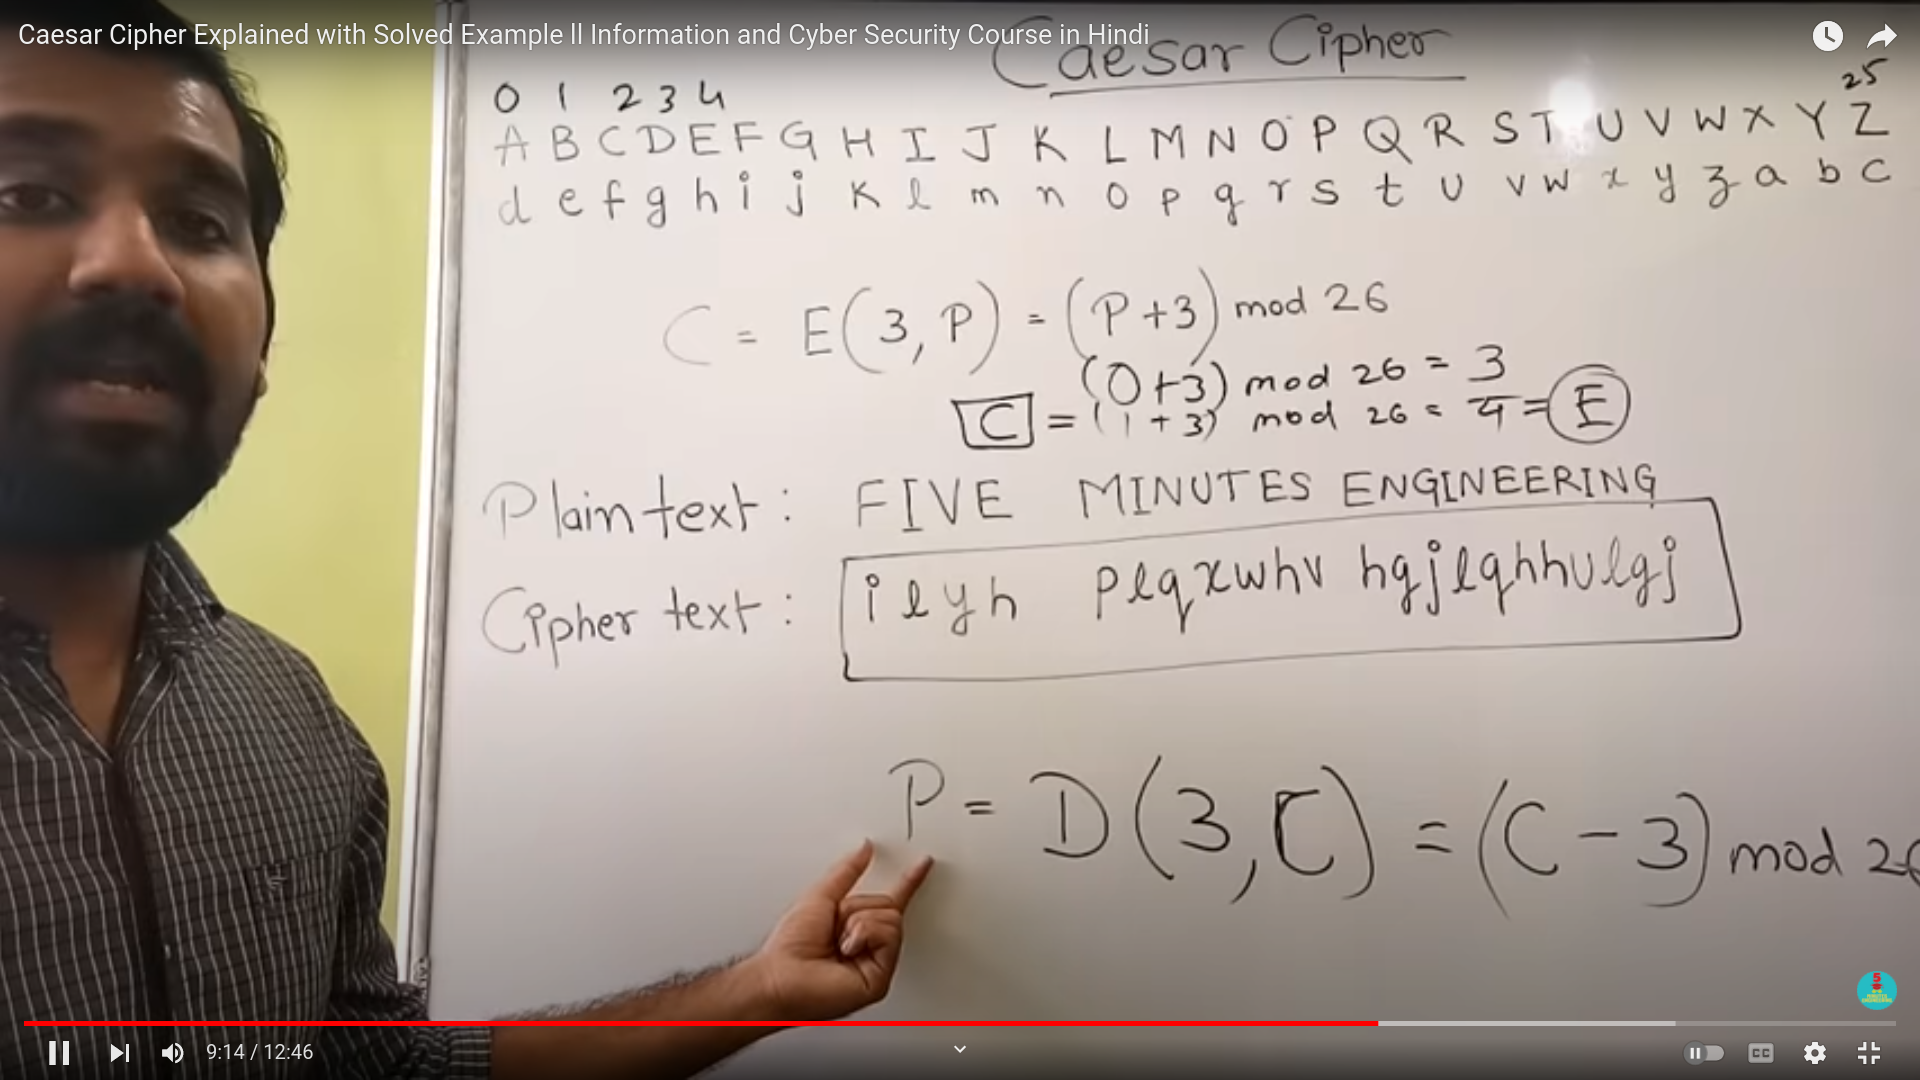 Caesar Cipher Explained with Solved Example ll Information and Cyber Security Course in Hindi
Caesar Cipher
0 1 2 3 4 25
A B C D E F G H I J K L M N O P Q R S T U V W X Y Z
d e f g h i j k l m n o p q r s t u v w x y z a b c
C = E(3, P) = (P+3) mod 26
(0+3) mod 26 = 3
C = (1+3) mod 26 = 4 = E
Plain text : FIVE MINUTES ENGINEERING
Cipher text : ilyh plqxwhv hqjlqhhulgj
P = D(3, C) = (C-3) mod 26
5
MINUTES
ENGINEERING
9:14 / 12:46
CC